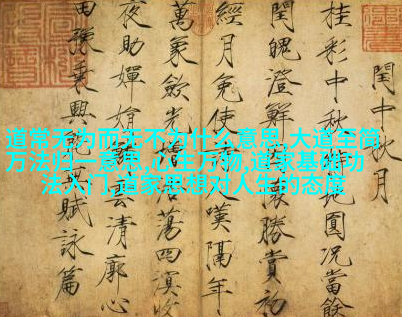 道常无为而无不为什么意思,大道至简
万法归一意思,心生万物,道家基础功
法入门,道家思想对人生的态度
閏中秋月
桂彩中秋地圓況當餘
閏魄澄鮮勝賞初
經月免使嘆隔年
萬象歛光蕩四溟收
夜助嬋娟雲清廓心
田豫乘興賦詠篇